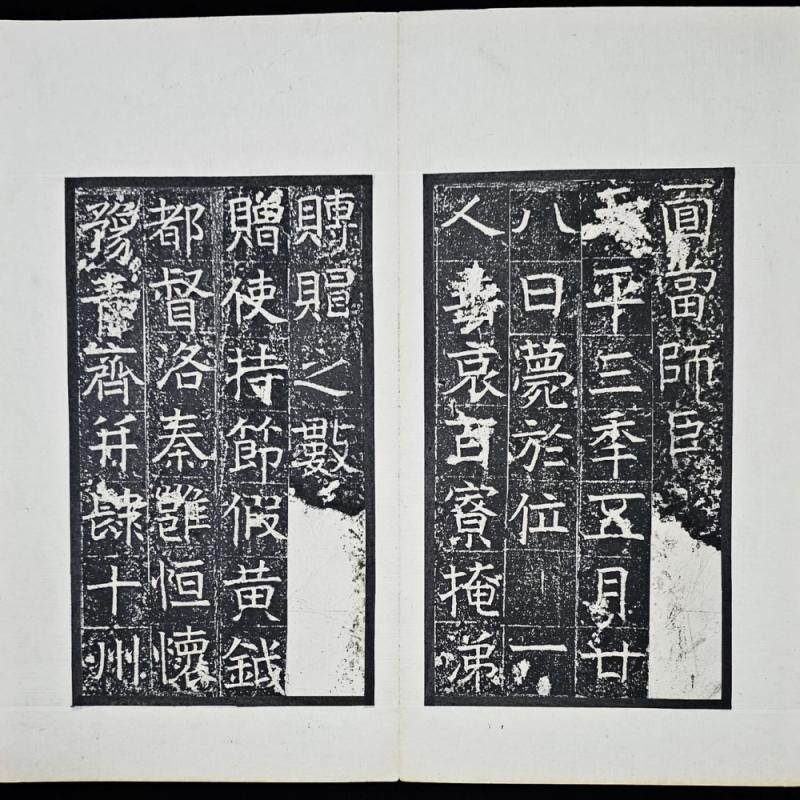 面當師臣
天平三季五月廿
八日薨於位 一
人哀百寮掩涕
賻賵之數
贈使持節假黃鉞
都督洛秦雝恒懷
豫青齊并肆十州